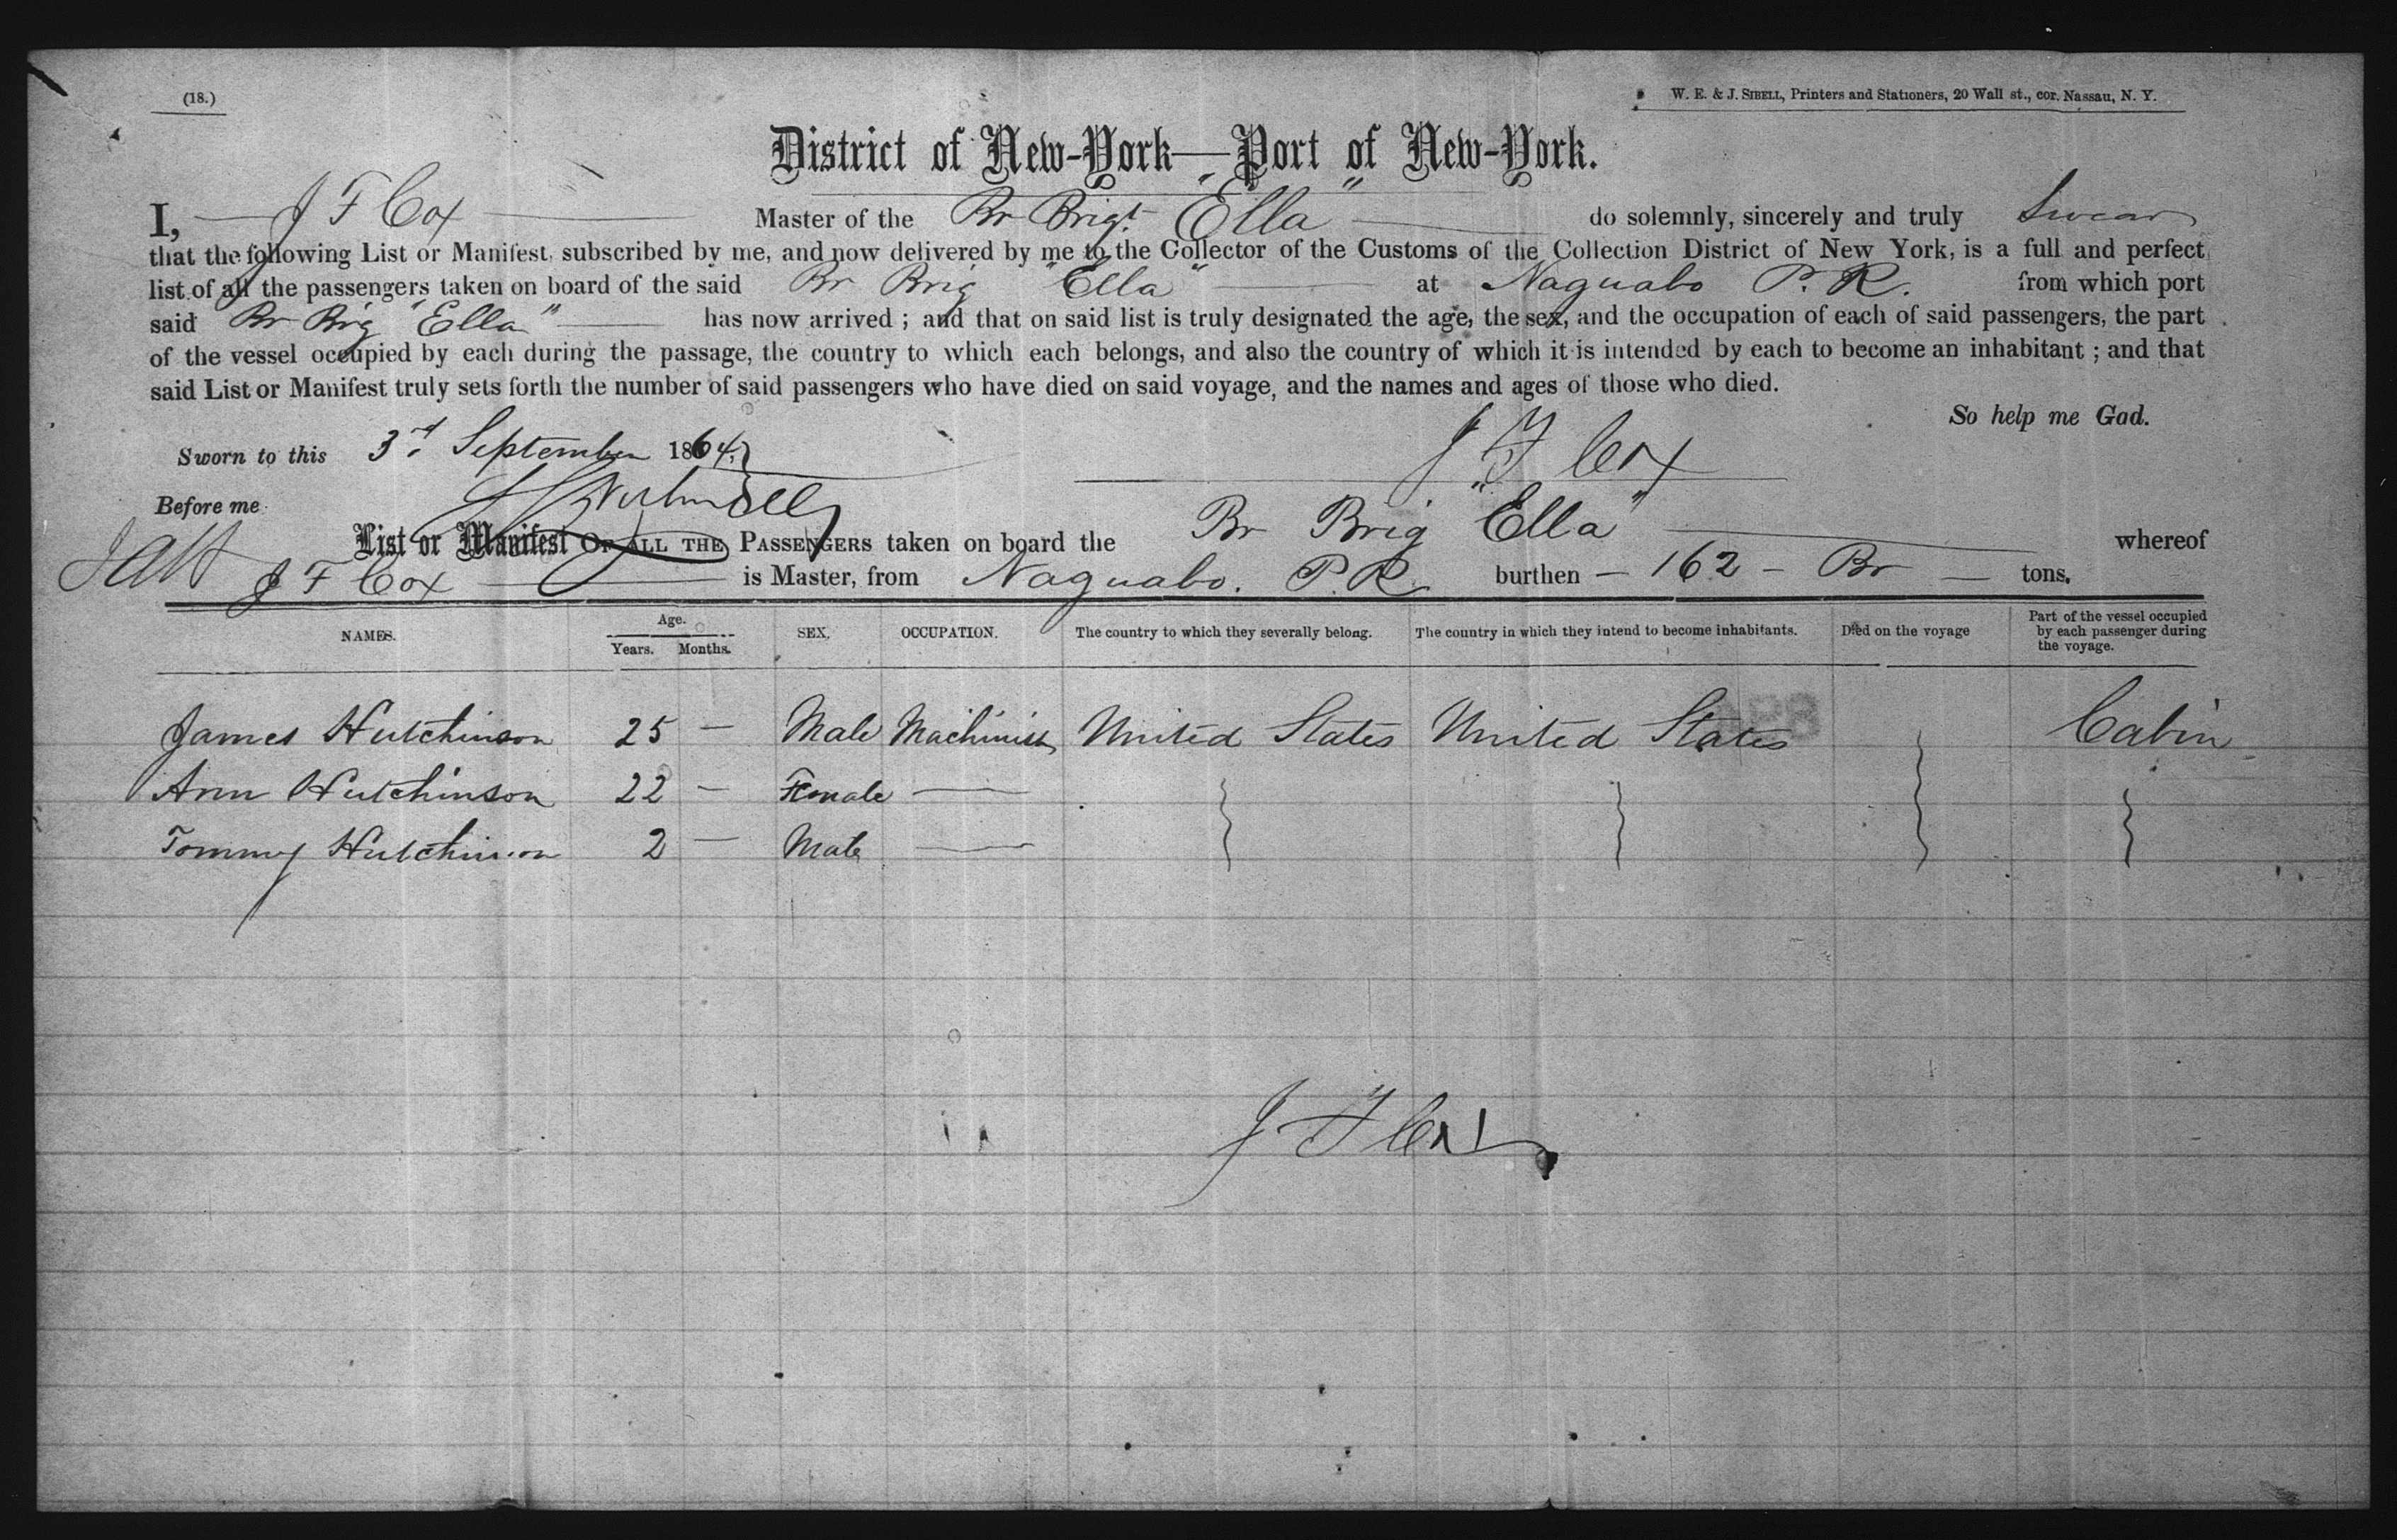 (18.)
W. E. & J. SIBELL, Printers and Stationers, 20 Wall st., cor. Nassau, N. Y.
District of New-York—Port of New-York.
I, J F Cox Master of the Br Brigt "Ella" do solemnly, sincerely and truly Swear
that the following List or Manifest, subscribed by me, and now delivered by me to the Collector of the Customs of the Collection District of New York, is a full and perfect
list of all the passengers taken on board of the said Br Brig "Ella" at Naguabo P. R. from which port
said Br Brig "Ella" has now arrived ; and that on said list is truly designated the age, the sex, and the occupation of each of said passengers, the part
of the vessel occupied by each during the passage, the country to which each belongs, and also the country of which it is intended by each to become an inhabitant ; and that
said List or Manifest truly sets forth the number of said passengers who have died on said voyage, and the names and ages of those who died.
So help me God.
Sworn to this 3rd September 1864. J F Cox
Before me
List or Manifest OF ALL THE PASSENGERS taken on board the Br Brig "Ella" whereof
J F Cox is Master, from Naguabo. P. R. burthen — 162 — Br — tons.
NAMES. Age. Years. Months. SEX. OCCUPATION. The country to which they severally belong. The country in which they intend to become inhabitants. Died on the voyage Part of the vessel occupied by each passenger during the voyage.
James Hutchinson 25 — Male Machinist United States United States Cabin
Ann Hutchinson 22 — Female —
Tommy Hutchinson 2 — Male —
J F Cox